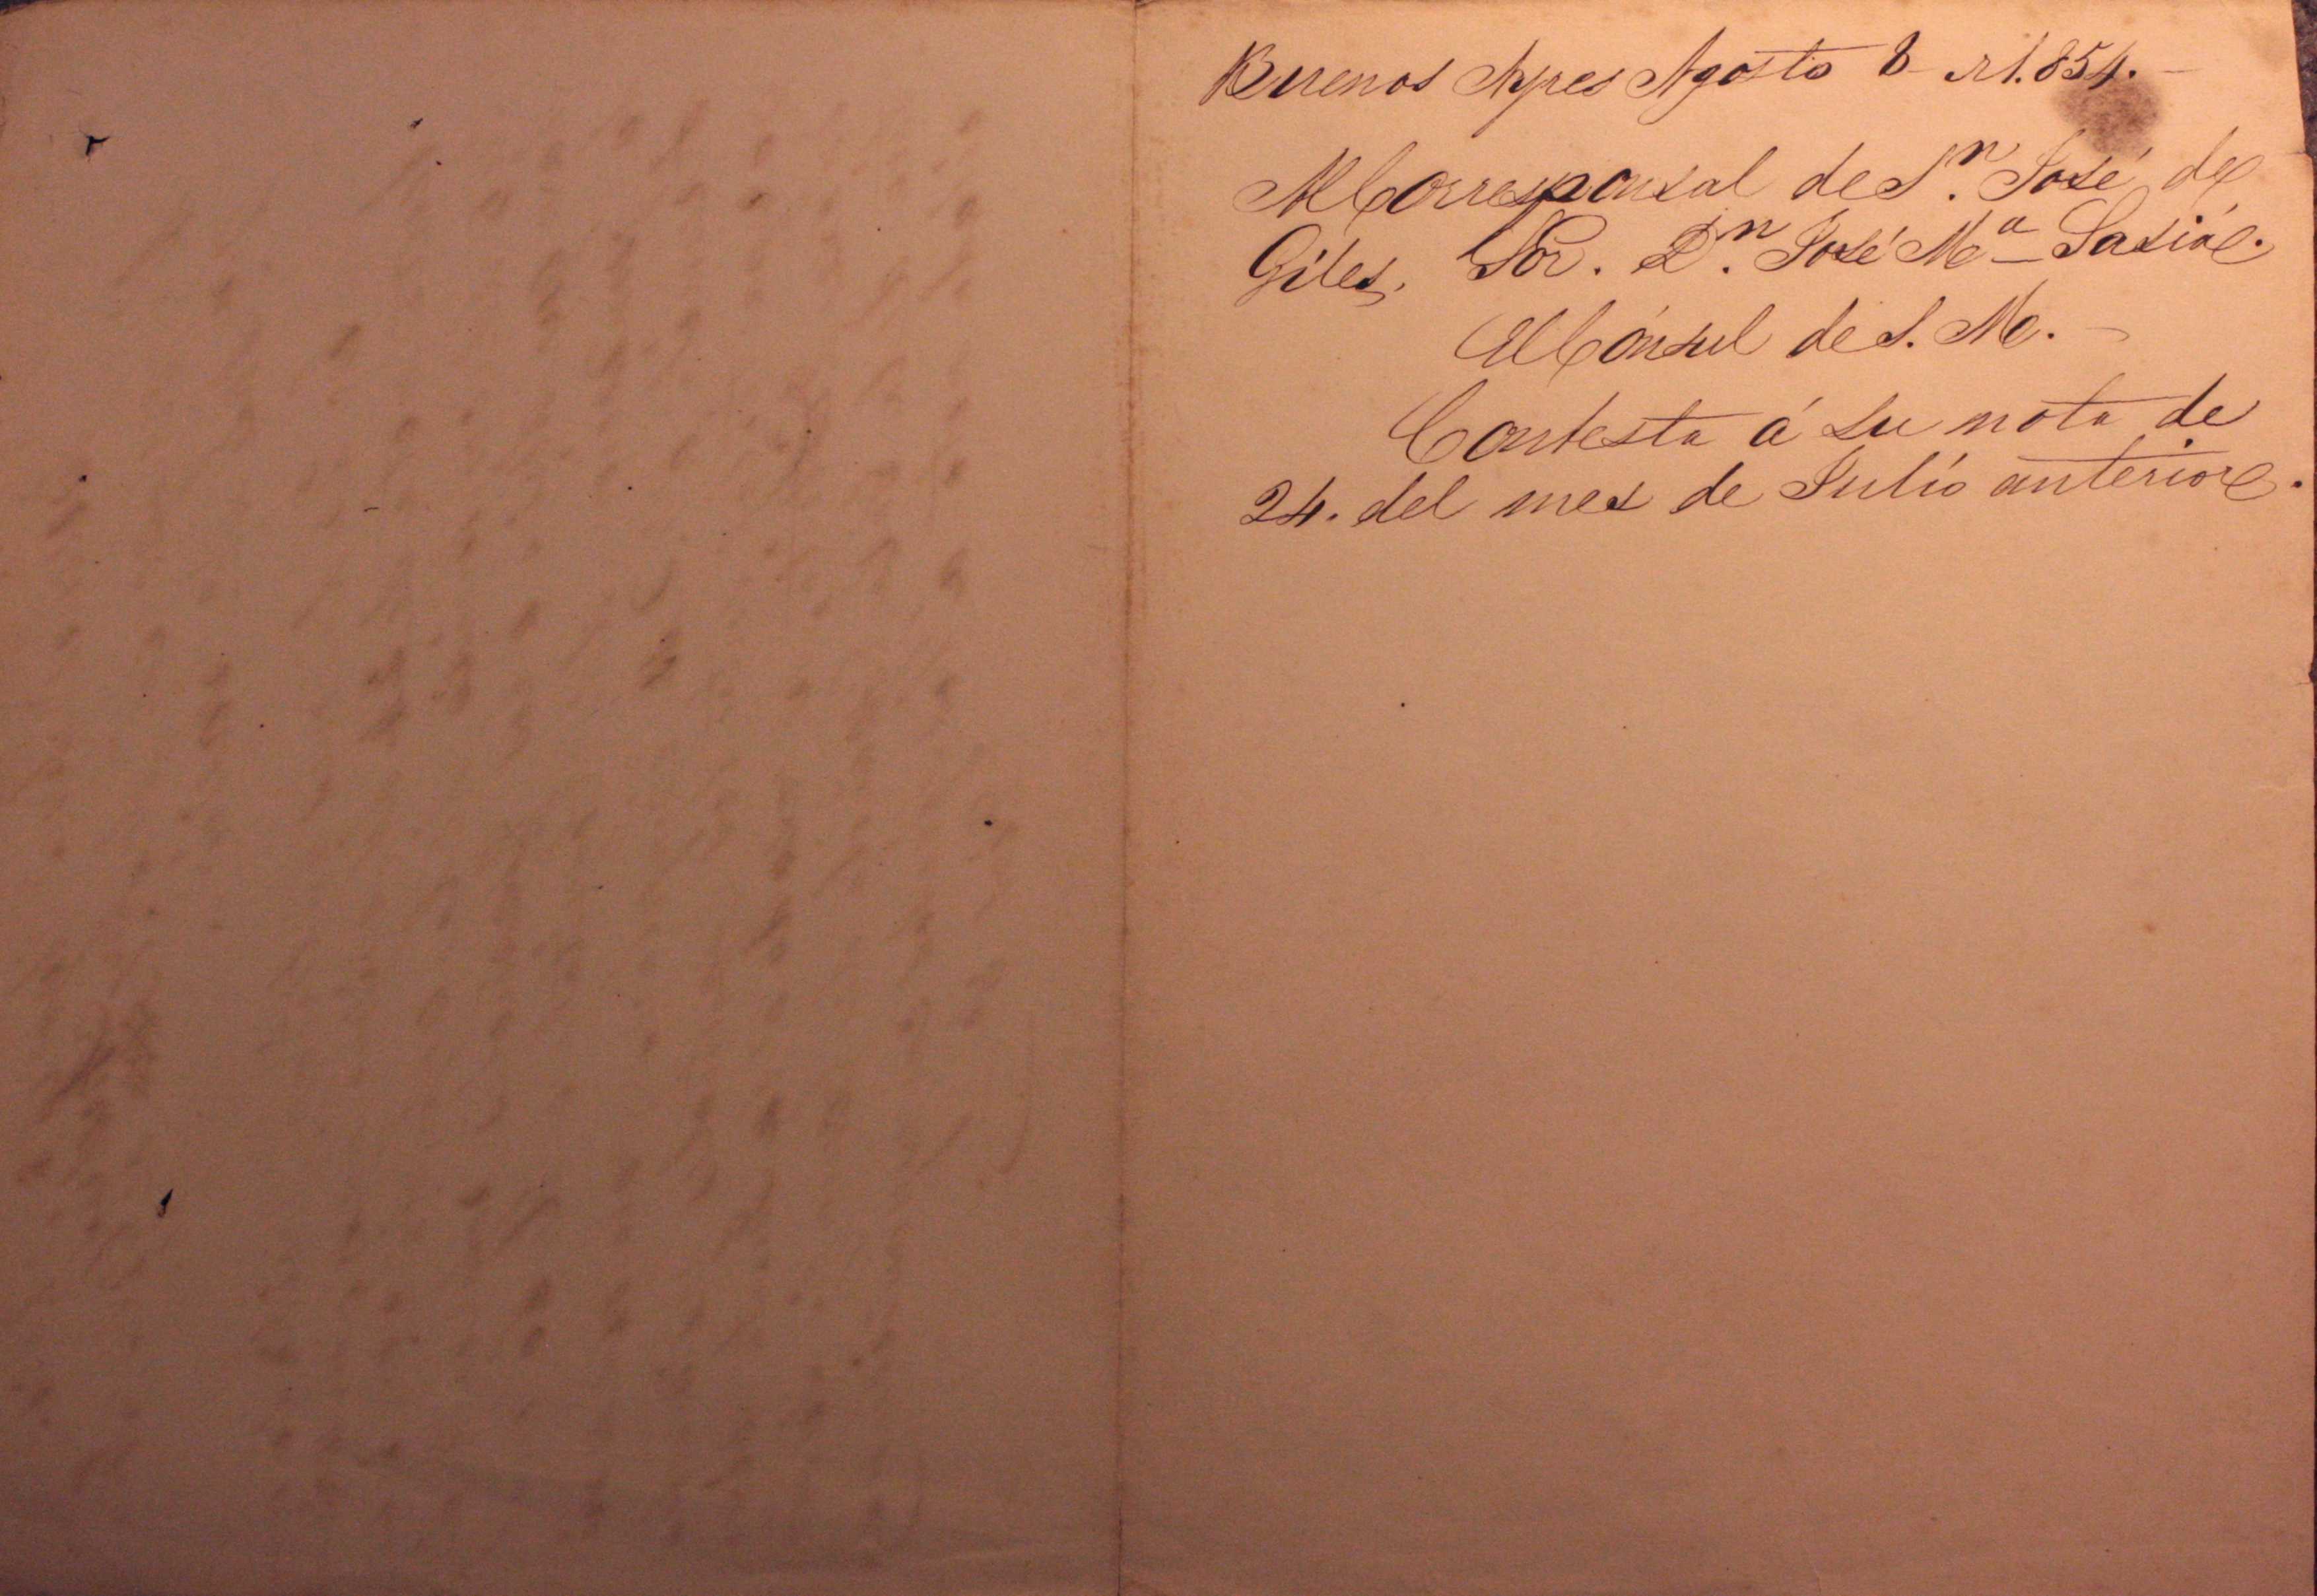 Buenos Ayres Agosto 8 de 1.854.
Al Corresponsal de Sn. José de
Giles, Sor. Dn. José Ma
El Cónsul de S. M.
Contesta á su nota de
24. del mes de Julio anterior.